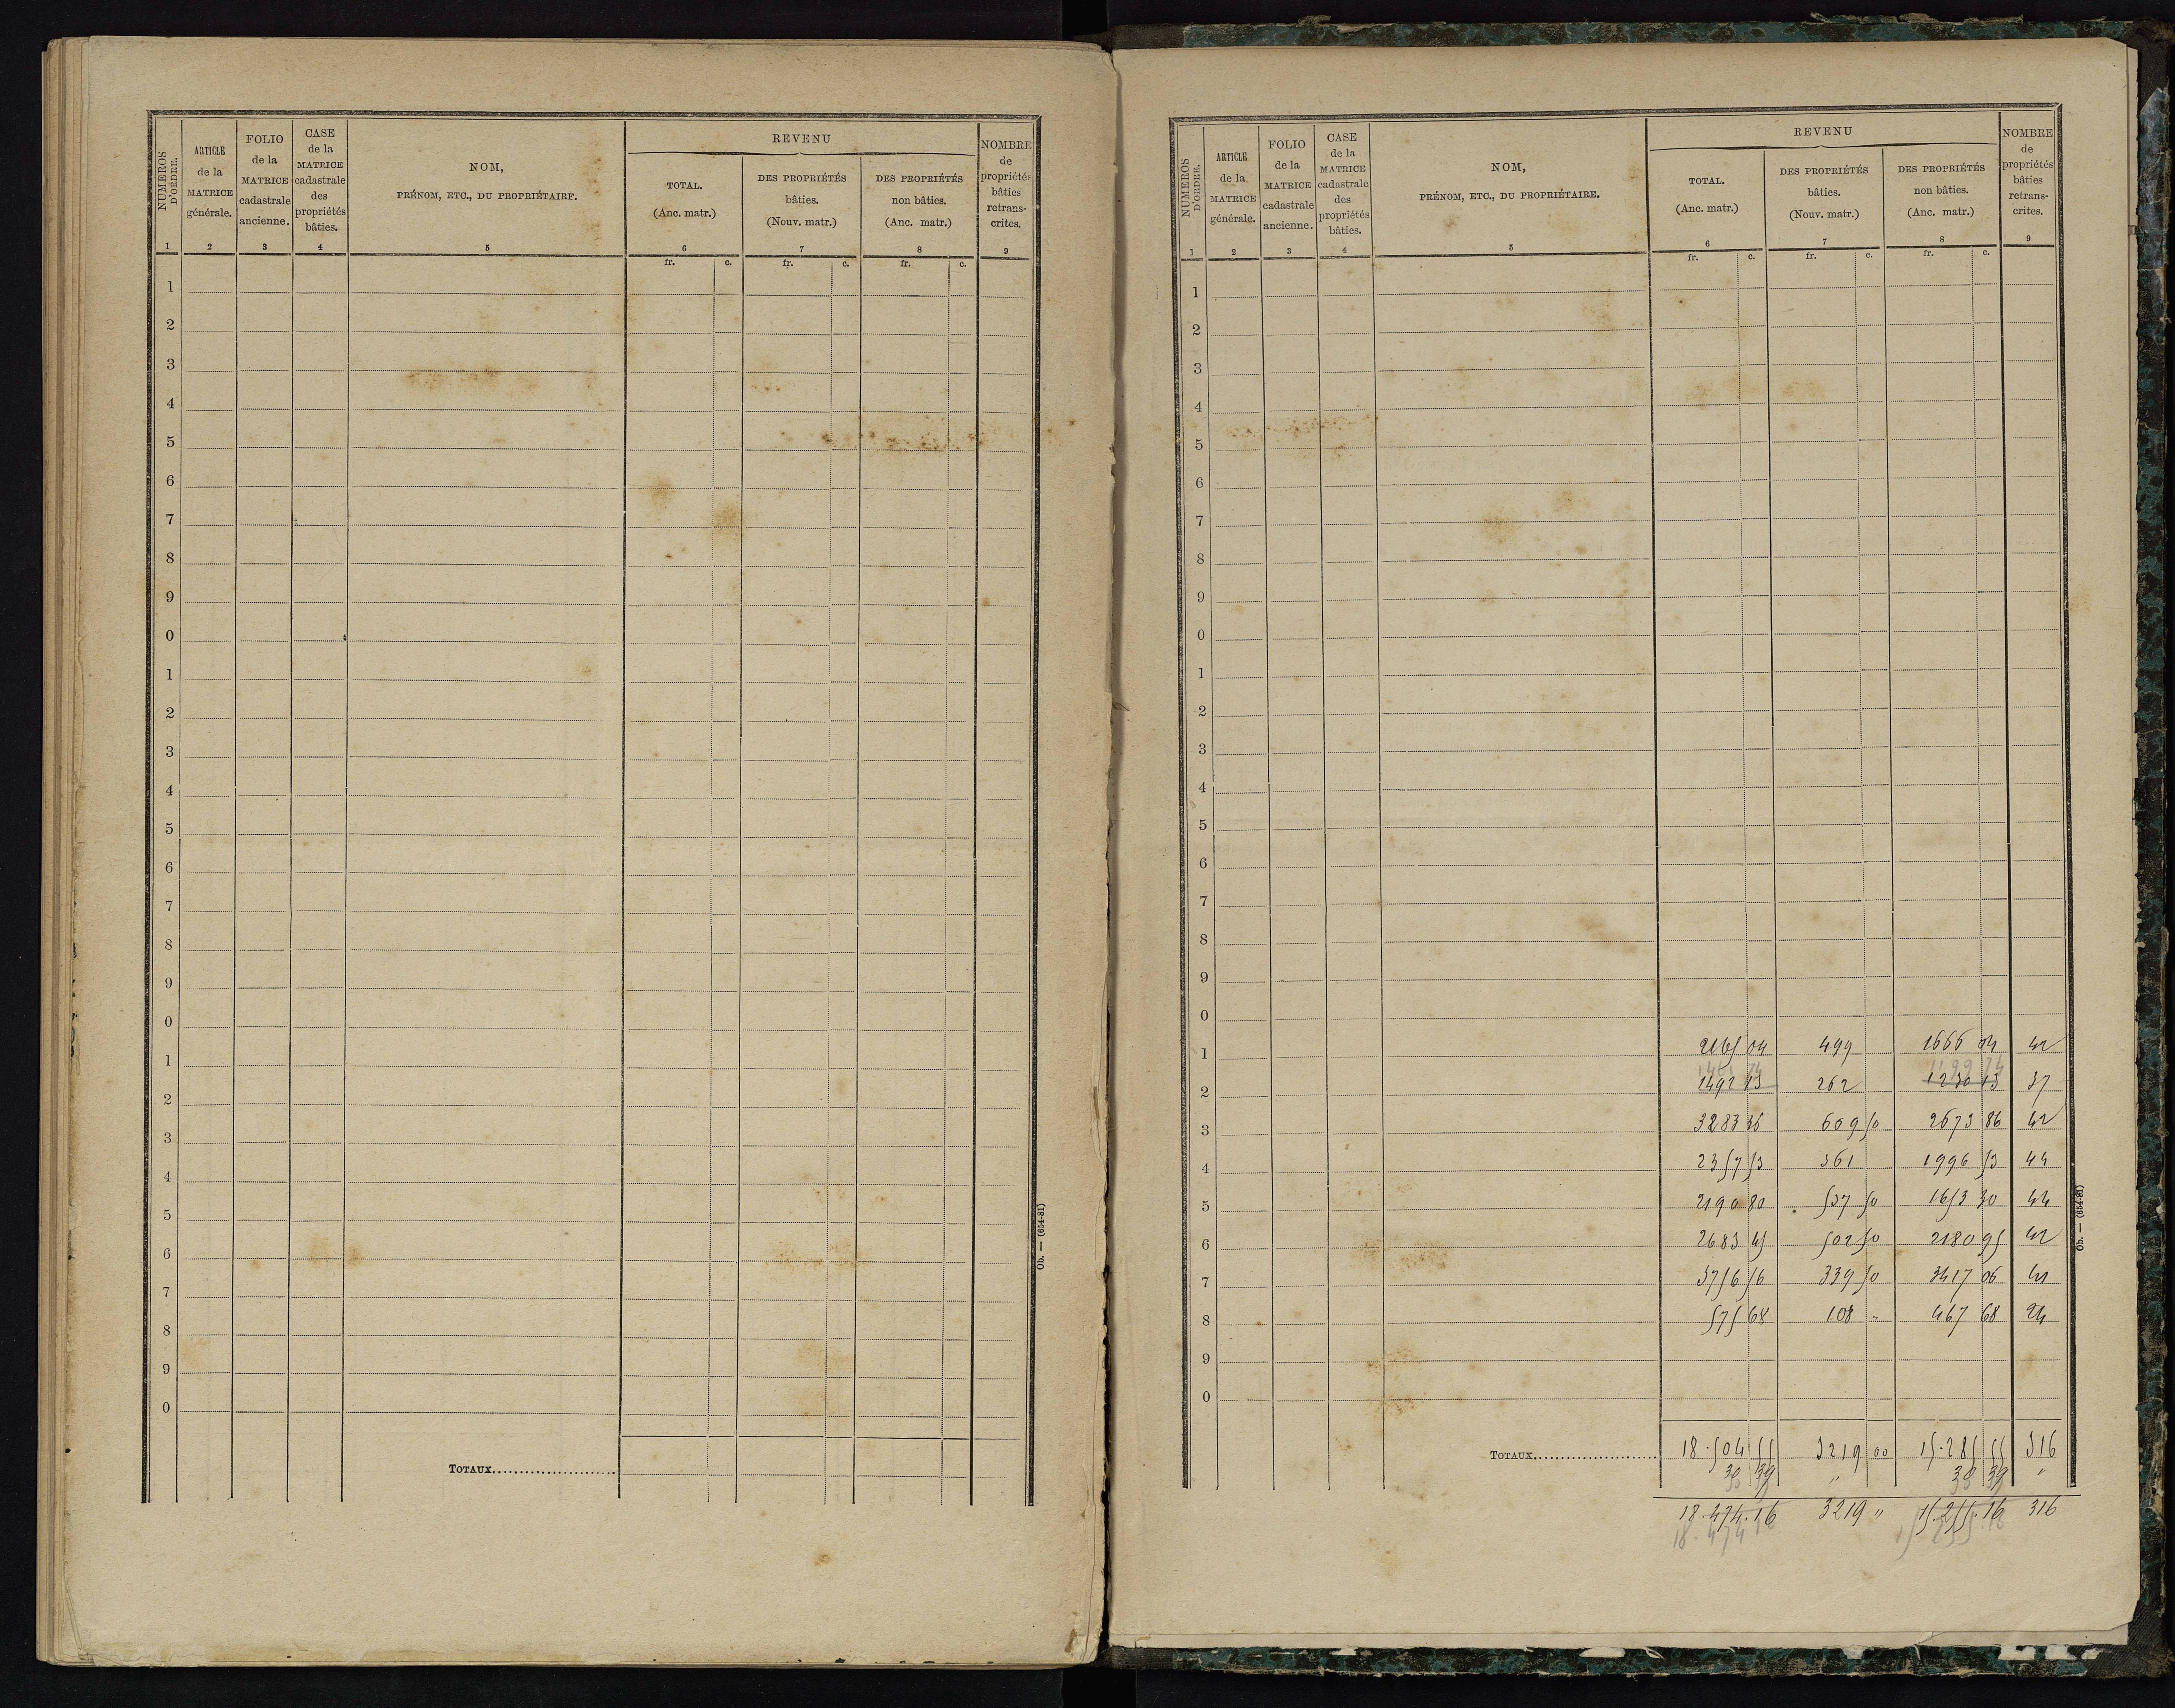 NUMÉROS D'ORDRE.
ARTICLE de la MATRICE générale.
FOLIO de la MATRICE cadastrale ancienne.
CASE de la MATRICE cadastrale des propriétés bâties.
NOM,
PRÉNOM, ETC., DU PROPRIÉTAIRE.
REVENU
TOTAL. (Anc. matr.)
DES PROPRIÉTÉS bâties. (Nouv. matr.)
DES PROPRIÉTÉS non bâties. (Anc. matr.)
NOMBRE de propriétés bâties retranscrites.
1 2 3 4 5 6 7 8 9
fr. c. fr. c. fr. c.
1
2
3
4
5
6
7
8
9
0
1
2
3
4
5
6
7
8
9
0
1
2
3
4
5
6
7
8
9
0
TOTAUX
Ob. — (654-81)
NUMÉROS D'ORDRE.
ARTICLE de la MATRICE générale.
FOLIO de la MATRICE cadastrale ancienne.
CASE de la MATRICE cadastrale des propriétés bâties.
NOM,
PRÉNOM, ETC., DU PROPRIÉTAIRE.
REVENU
TOTAL. (Anc. matr.)
DES PROPRIÉTÉS bâties. (Nouv. matr.)
DES PROPRIÉTÉS non bâties. (Anc. matr.)
NOMBRE de propriétés bâties retranscrites.
1 2 3 4 5 6 7 8 9
fr. c. fr. c. fr. c.
1
2
3
4
5
6
7
8
9
0
1
2
3
4
5
6
7
8
9
0
1 2165 04 499 1666 04 42
2 1492 13 262 1230 13 37
3 3283 36 609 50 2673 86 42
4 2357 53 361 1996 53 44
5 2190 80 537 50 1653 30 44
6 2683 45 502 50 2180 95 42
7 3756 56 339 50 3417 06 41
8 575 68 108 " 467 68 24
9
0
TOTAUX 18.504 55 3219 00 15.285 55 316
30 39 " 30 39 "
18.474.16 3219 " 15.255.16 316
18.474 16 15 255 16
Ob. — (654-81)